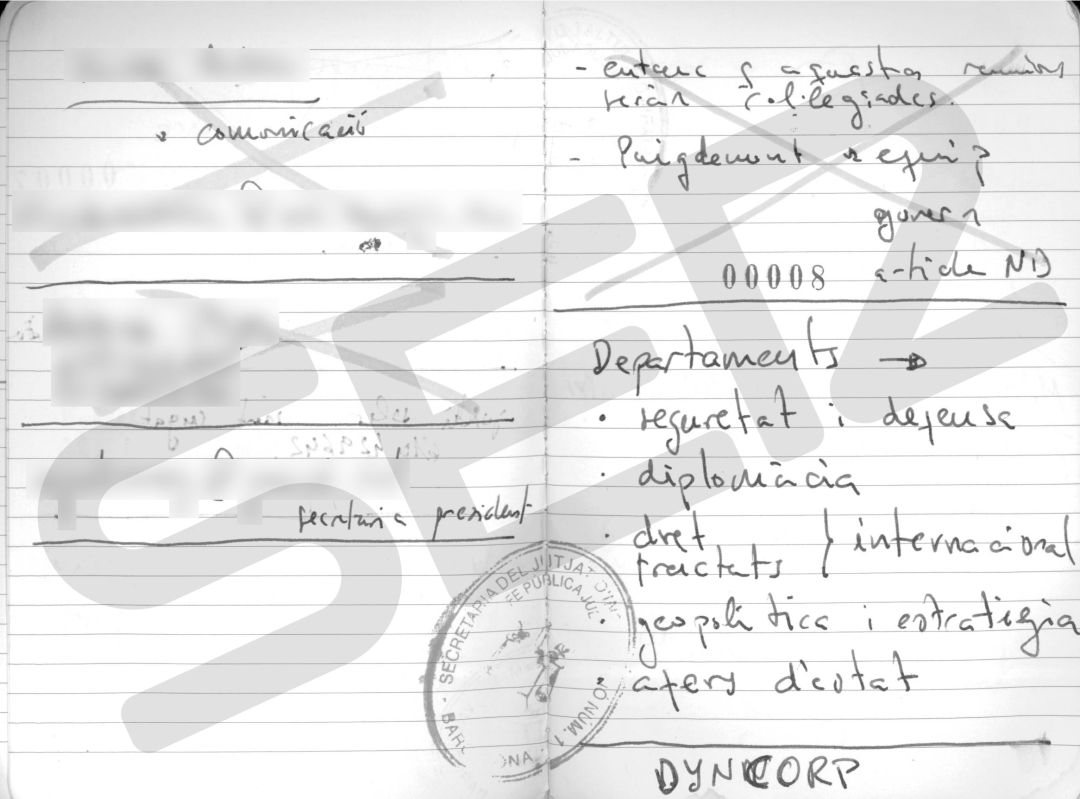 comunicació
secretaria president
- entenc q aquestes reunions
seran col·legiades.
- Puigdemont equip
govern
00008 article ND
Departaments →
• seguretat i defensa
• diplomàcia
• dret
tractats } internacional
• geopolítica i estratègia
• afers d'estat
DYNCORP
SECRETARIA DEL JUTJAT D'IN
FE PÚBLICA JU
NÚM. 1
BAR
NA
SER